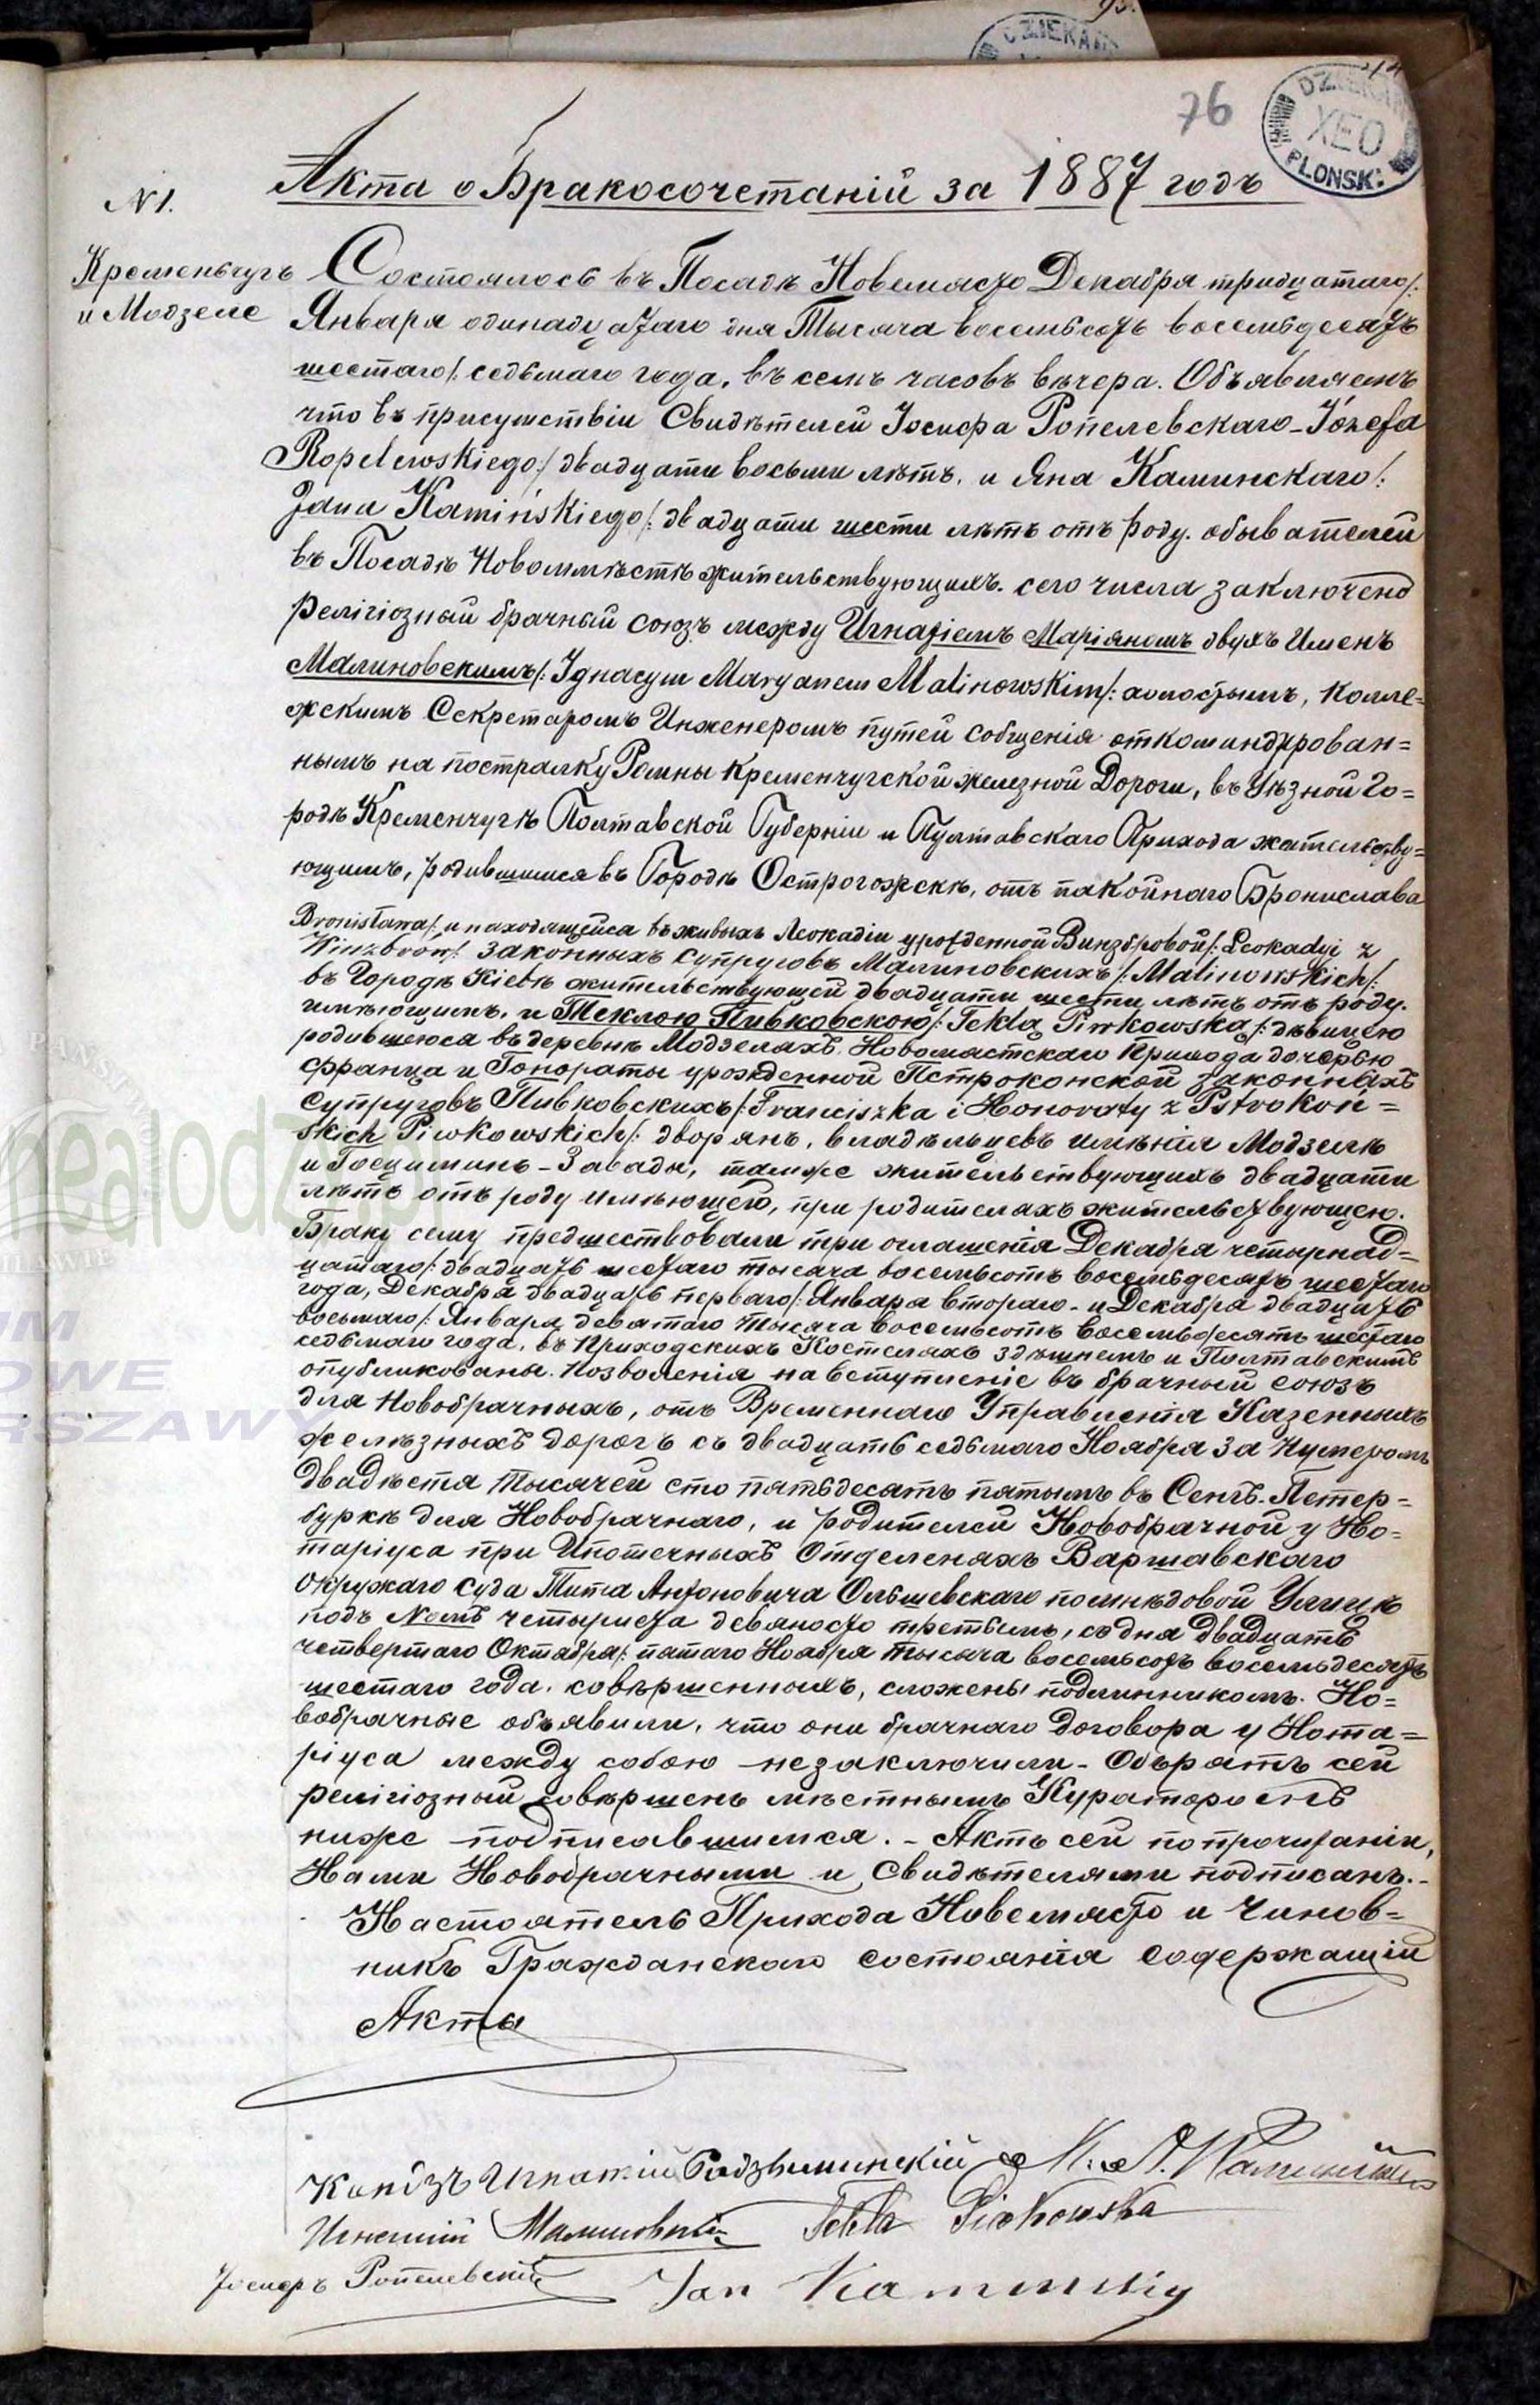 76
DZIEKAN
XEO
PLONSK.
Акта о Бракосочетанiй за 1887 годъ
N 1.
Кременьчугъ
и Модзеле
Состоялось въ Посадѣ Новемясто Декабря тридцатаго/:
Января одинадцатаго дня Тысяча восемьсотъ восемьдесятъ
шестаго/: седьмаго года, въ семъ часовъ вѣчера. Объявляемъ
что въ присуществiи Свидѣтелей Іосифа Ропелевскаго - Józefa
Ropelewskiego:/ двадцати восьми лѣтъ, и Яна Каминскаго/:
Jana Kamińskiego/: двадцати шести лѣтъ отъ роду. обывателей
въ Посадѣ Новоммѣстѣ жительствующихъ. сего числа заключено
религiозный брачный союзъ между Игнатiемъ Марiяномъ двухъ Именъ
Малиновскимъ/: Ignacym Maryanem Malinowskim/: холостымъ, Колле=
жскимъ Секретаромъ Инженеромъ путей собщенiя откомандирован=
нымъ на постралку Ромны Кременчугской железной Дороги, въ Уѣзной Го=
родѣ Кременчугѣ Полтавской Губернiи и Пултавскаго Прихода жательству=
ющимъ, родившимся въ Городѣ Острогожскѣ, отъ пакойнаго Бронислава
Bronisława/: и находящейся въ живыхъ Леокадiи урожденной Винзбровой/: Leokadyi z
Winzbron/: законныхъ супруговъ Малиновскихъ/: Malinowskich/:
въ Городѣ Кiевѣ жительствующей двадцати шести лѣтъ отъ роду.
имѣющимъ, и Теклою Пивковскою/: Teklą Piwkowską/: дѣвицею
родившеюся въ деревнѣ Модзеляхъ Новомястскаго Прихода дочерью
Францa и Гонораты урожденной Пстроконской законныхъ
супруговъ Пивковскихъ/: Franciszka i Honoraty z Pstrokoń=
skich Piwkowskich/: дворянъ, владѣльцевъ имѣнiя Модзелѣ
и Госциминъ - Завады, тамже жительствующихъ двадцати
лѣтъ отъ роду имѣющей, при родителяхъ жительствующею.
Браку сему предшествовали три оглашенiя Декабря четырнад=
цатаго/: двадцать шестаго тысяча восемьсотъ восемьдесятъ шестаго
года, Декабря двадцать перваго/: Января втораго - и Декабря двадцать
восьмаго/: Января девятаго тысяча восемьсотъ восемьдесятъ шестаго
седьмаго года, въ Приходскихъ Костелахъ здѣшнемъ и Полтавскимъ
опубликованы. Позволенiя на вступленiе въ брачный союзъ
для Новобрачныхъ, отъ Временнаго Управленiя Казенныхъ
желѣзныхъ дорогъ съ двадцать седьмаго Ноября за Нумеромъ
двадѣстя тысячей сто пятьдесятъ пятымъ въ Сенгъ. Петер=
буркѣ для Новобрачнаго, и родителей Новобрачной у Но=
тарiуса при Ипотечныхъ Отделеняхъ Варшавскаго
Окружаго Суда Тита Антоновича Ольшевскаго по мѣдовой Улицѣ
подъ Nомъ четыриста девяносто третьимъ, со дня двадцать
четвертаго Октября/: пятаго Ноября тысяча восемьсотъ восемьдесятъ
шестаго года. ковѣршенныхъ, сложены подлинникомъ. Но=
вобрачные объявили, что они брачнаго договора у Нота=
рiуса между собою незаключили - Обърятъ сей
религiозный совѣршенъ мѣстнымъ Кураторомъ
ниже подписавшимся. - Актъ сей по прочитанiи,
Нами Новобрачными и Свидѣтелями подписанъ. -
Настоятель Прихода Новемясто и Чинов=
никъ Гражданскаго состоянiя содержащiй
Акты
Ксндзъ Игнатiй
Игнатiй Малиновскiй Tekla Piwkowska
Іосифъ Ропелевскiй Jan Kaminskiy